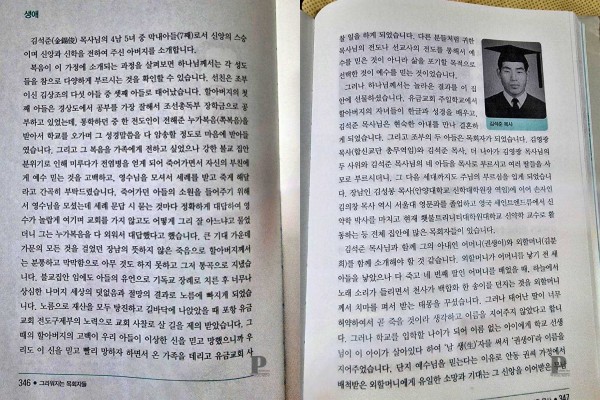 생애
김석준(金錫俊) 목사님의 4남 5녀 중 막내아들(7째)로서 신앙의 스승
이며 신앙과 신학을 전하여 주신 아버지를 소개합니다.
복음이 이 가정에 소개되는 과정을 살펴보면 하나님께서는 각 성도
들을 참으로 다양하게 부르시는 것을 확인할 수 있습니다. 선친은 조부
이신 김상조의 다섯 아들 중 셋째 아들로 태어났습니다. 할아버지의 첫
째 아들은 경상도에서 공부를 가장 잘해서 조선총독부 장학금으로 공
부하고 있었는데, 통학하던 중 한 전도인이 전해준 누가복음(쪽복음)을
받아서 학교를 오가며 그 성경말씀을 다 암송할 정도로 마음에 받아들
였습니다. 그리고 그 복음을 가족에게 전하고 싶었으나 강한 불교 집안
분위기로 인해 미루다가 전염병을 얻게 되어 죽어가면서 자신의 부친에
게 예수 믿는 것을 고백하고, 영수님을 모셔서 세례를 받고 죽게 해달
라고 간곡히 부탁드렸습니다. 죽어가던 아들의 소원을 들어주기 위해
서 영수님을 모셨는데 세례 문답 시 묻는 것마다 정확하게 대답하여 영
수가 놀랍게 여기며 교회를 가지 않고도 어떻게 그리 잘 아느냐고 물었
더니 그는 누가복음을 다 외워서 대답했다고 했습니다. 큰 기대 가운데
가문의 모든 것을 걸었던 장남의 뜻하지 않은 죽음으로 할아버지께서
는 분통하고 막막함으로 아무 것도 하지 못하고 그저 통곡으로 지냈습
니다. 불교집안 임에도 아들의 유언으로 기독교 장례로 치른 후 너무나
상심한 나머지 세상의 덧없음과 절망의 결과로 노름에 빠지게 되었습
니다. 노름으로 재산을 모두 탕진하고 길바닥에 나앉았을 때 포항 유금
교회 전도구제부의 노력으로 교회 사찰로 살 길을 제의 받았습니다. 그
때의 할아버지의 고백이 우리 아들이 이상한 신을 믿고 망했으니까 우
리도 이 신을 믿고 빨리 망하자 하면서 온 가족을 데리고 유금교회 사
346 • 그리워지는 목회자들
찰 일을 하게 되었습니다. 다른 분들처럼 귀한
목사님의 전도나 선교사의 전도를 통해서 예
수를 믿은 것이 아니라 삶을 포기할 목적으로
선택한 것이 예수를 믿는 것이었습니다.
그러나 하나님께서는 놀라운 결과를 이 집
안에 선물하셨습니다. 유금교회 주일학교에서
할아버지의 자녀들이 한글과 성경을 배우고,
김석준 목사님은 현숙한 아내를 만나 결혼하
게 되었습니다. 그리고 조부의 두 아들은 목회자가 되었습니다. 김영광
목사(합신교단 총무역임)와 김석준 목사, 더 나아가 김영광 목사님의
두 사위와 김석준 목사님의 네 아들을 목사로 부르시고 여러 딸들을 사
모로 부르시더니, 그 다음 세대까지도 주님의 부르심을 입게 되었습니
다. 장남인 김성봉 목사(안양대학교 신학대학원장 역임)에 이어 손자인
김의창 목사 역시 서울대 영문과를 졸업하고 영국 세인트앤드류에서 신
약학 박사를 마치고 현재 횃불트리니티대학원대학교 신약학 교수로 활
동하는 등 전체 집안에 많은 목회자들이 있습니다.
김석준 목사님과 함께 그의 아내인 어머니(권생이)와 외할머니(김분
희)를 함께 소개해야 할 것 같습니다. 외할머니가 어머니를 낳기 전 세
아들을 낳았으나 다 죽고 네 번째 딸인 어머니를 배었을 때, 하늘에서
노래 소리가 들리면서 천사가 백합화 한 송이를 던지는 것을 외할머니
께서 치마를 펴서 받는 태몽을 꾸셨습니다. 그러나 태어난 딸이 너무
허약하여서 곧 죽을 것이라 생각하고 이름을 지어주지 않았다고 합니
다. 그러나 학교를 입학할 나이가 되어 이름 없는 아이에게 학교 선생
님이 이 아이가 살아있다 하여 '날 생(生)'자를 써서 '권생이'라 이름을
지어주었습니다. 단지 예수님을 믿는다는 이유로 안동 권씨 가정에서
배척받은 외할머니에게 유일한 소망과 기대는 그 신앙을 이어받은
김석준 목사
347